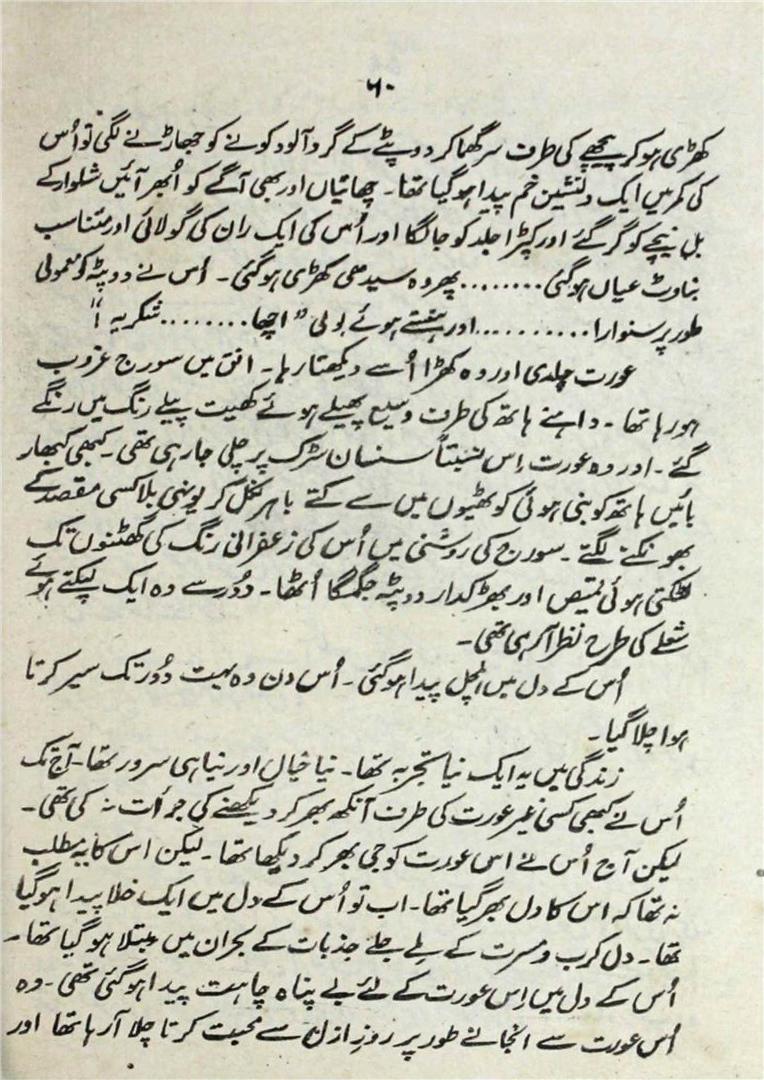 ۶۰
کھڑی ہو کر پیچھے کی طرف سر گھما کر دوپٹے کے گرد آلود کونے کو جھاڑنے لگی تو اُس
کی کمر میں ایک دلنشین خم پیدا ہو گیا تھا۔ چھاتیاں اور بھی آگے کو اُبھر آئیں شلوار کے
بل نیچے کو گر گئے اور کپڑا جلد کو جا لگا اور اُس کی ایک ران کی گولائی اور متناسب
بناوٹ عیاں ہو گئی........پھر وہ سیدھی کھڑی ہو گئی۔ اُس نے دوپٹہ کو معمولی
طور پر سنوارا..........اور ہنستے ہوئے بولی "اچھا........شکریہ!"
عورت چلدی اور وہ کھڑا اُسے دیکھتا رہا۔ افق میں سورج غروب
ہو رہا تھا۔ داہنے ہاتھ کی طرف وسیع پھیلے ہوئے کھیت پیلے رنگ میں رنگے
گئے۔ اور وہ عورت اِس نسبتاً سنسان سڑک پر چلی جا رہی تھی۔ کبھی کبھار
بائیں ہاتھ کو بنی ہوئی کوٹھیوں میں سے کتے باہر نکل کر یونہی بلا کسی مقصد کے
بھونکنے لگتے۔ سورج کی روشنی میں اُس کی زعفرانی رنگ کی گھٹنوں تک
لٹکتی ہوئی قمیص اور بھڑکدار دوپٹہ جگمگا اُٹھا۔ دُور سے وہ ایک لپکتے ہوئے
شعلے کی طرح نظر آ رہی تھی۔
اُس کے دل میں ہلچل پیدا ہو گئی۔ اُس دن وہ بہت دُور تک سیر کرتا
ہوا چلا گیا۔
زندگی میں یہ ایک نیا تجربہ تھا۔ نیا خیال اور نیا ہی سرور تھا۔ آج تک
اُس نے کبھی کسی غیر عورت کی طرف آنکھ بھر کر دیکھنے کی جرأت نہ کی تھی۔
لیکن آج اُس نے اس عورت کو جی بھر کر دیکھا تھا۔ لیکن اس کا یہ مطلب
نہ تھا کہ اس کا دل بھر گیا تھا۔ اب تو اُس کے دل میں ایک خلا پیدا ہو گیا
تھا۔ دل کرب و مسرت کے ملے جلے جذبات کے بحران میں مبتلا ہو گیا تھا۔
اُس کے دل میں اِس عورت کے لئے بے پناہ چاہت پیدا ہو گئی تھی۔ وہ
اُس عورت سے انجانے طور پر روزِ ازل سے محبت کرتا چلا آ رہا تھا اور